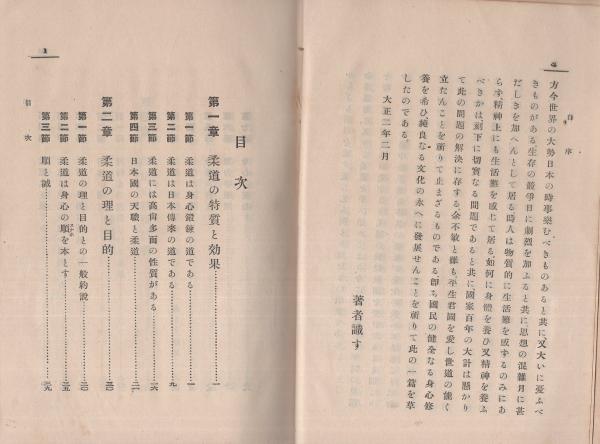 自序
四
方今世界の大勢日本の時事樂むべきものあると共に又大いに憂ふべ
きものがある生存の競爭日に劇烈を加ふると共に思想の混雜月に甚
だしきを加へんとして居る時人は物質的に生活難を感ずるのみにあ
らず、精神上にも生活難を感じて居る。如何に身體を養ひ又精神を養ふ
べきかは刻下に切實なる問題であると共に國家百年の大計は懸かり
て此の問題の解決に存する。余不敏と雖も、平生君國を愛し世道の能く
立たんことを祈りて止まざるものである。卽ち國民の健全なる身心修
養を希ひ、純良なる文化の永へに發展せんことを祈りて此の一篇を草
したのである。
大正二年二月
著者識す
目次
第一章 柔道の特質と効果…一
第一節 柔道は身心鍛錬の道である…一
第二節 柔道は日本傳來の道である…九
第三節 柔道には高尙多面の性質がある…一六
第四節 日本國の天職と柔道…二一
第二章 柔道の理と目的…三〇
第一節 柔道の理と目的との一般約說…三〇
第二節 柔道は身心の順を本とす…三五
第三節 順と誠…三九
目次
一